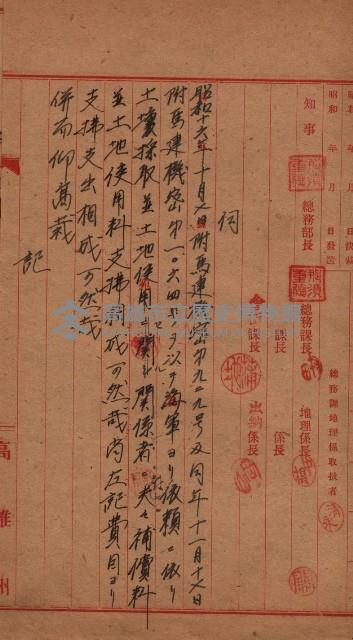 昭和 年 月 日
昭和 年 月 日發送
知事
總務部長
總務課長
總務課地理係取扱者
地理係長
課長
係長
課長
出納係長
伺
昭和十六年十月 日附馬建機密第九二九号及同年十一月十六日
附馬建機密第一〇六四号ヲ以テ海軍ヨリ依頼ニ依リ
土壌採取並土地使用ニ関スル関係者ニ夫々補償料
並土地使用料支拂 成可然哉尚左記費目ヨリ
支拂支出相成可然哉
併而仰高裁
記
高雄市立歷史博物館
高雄州